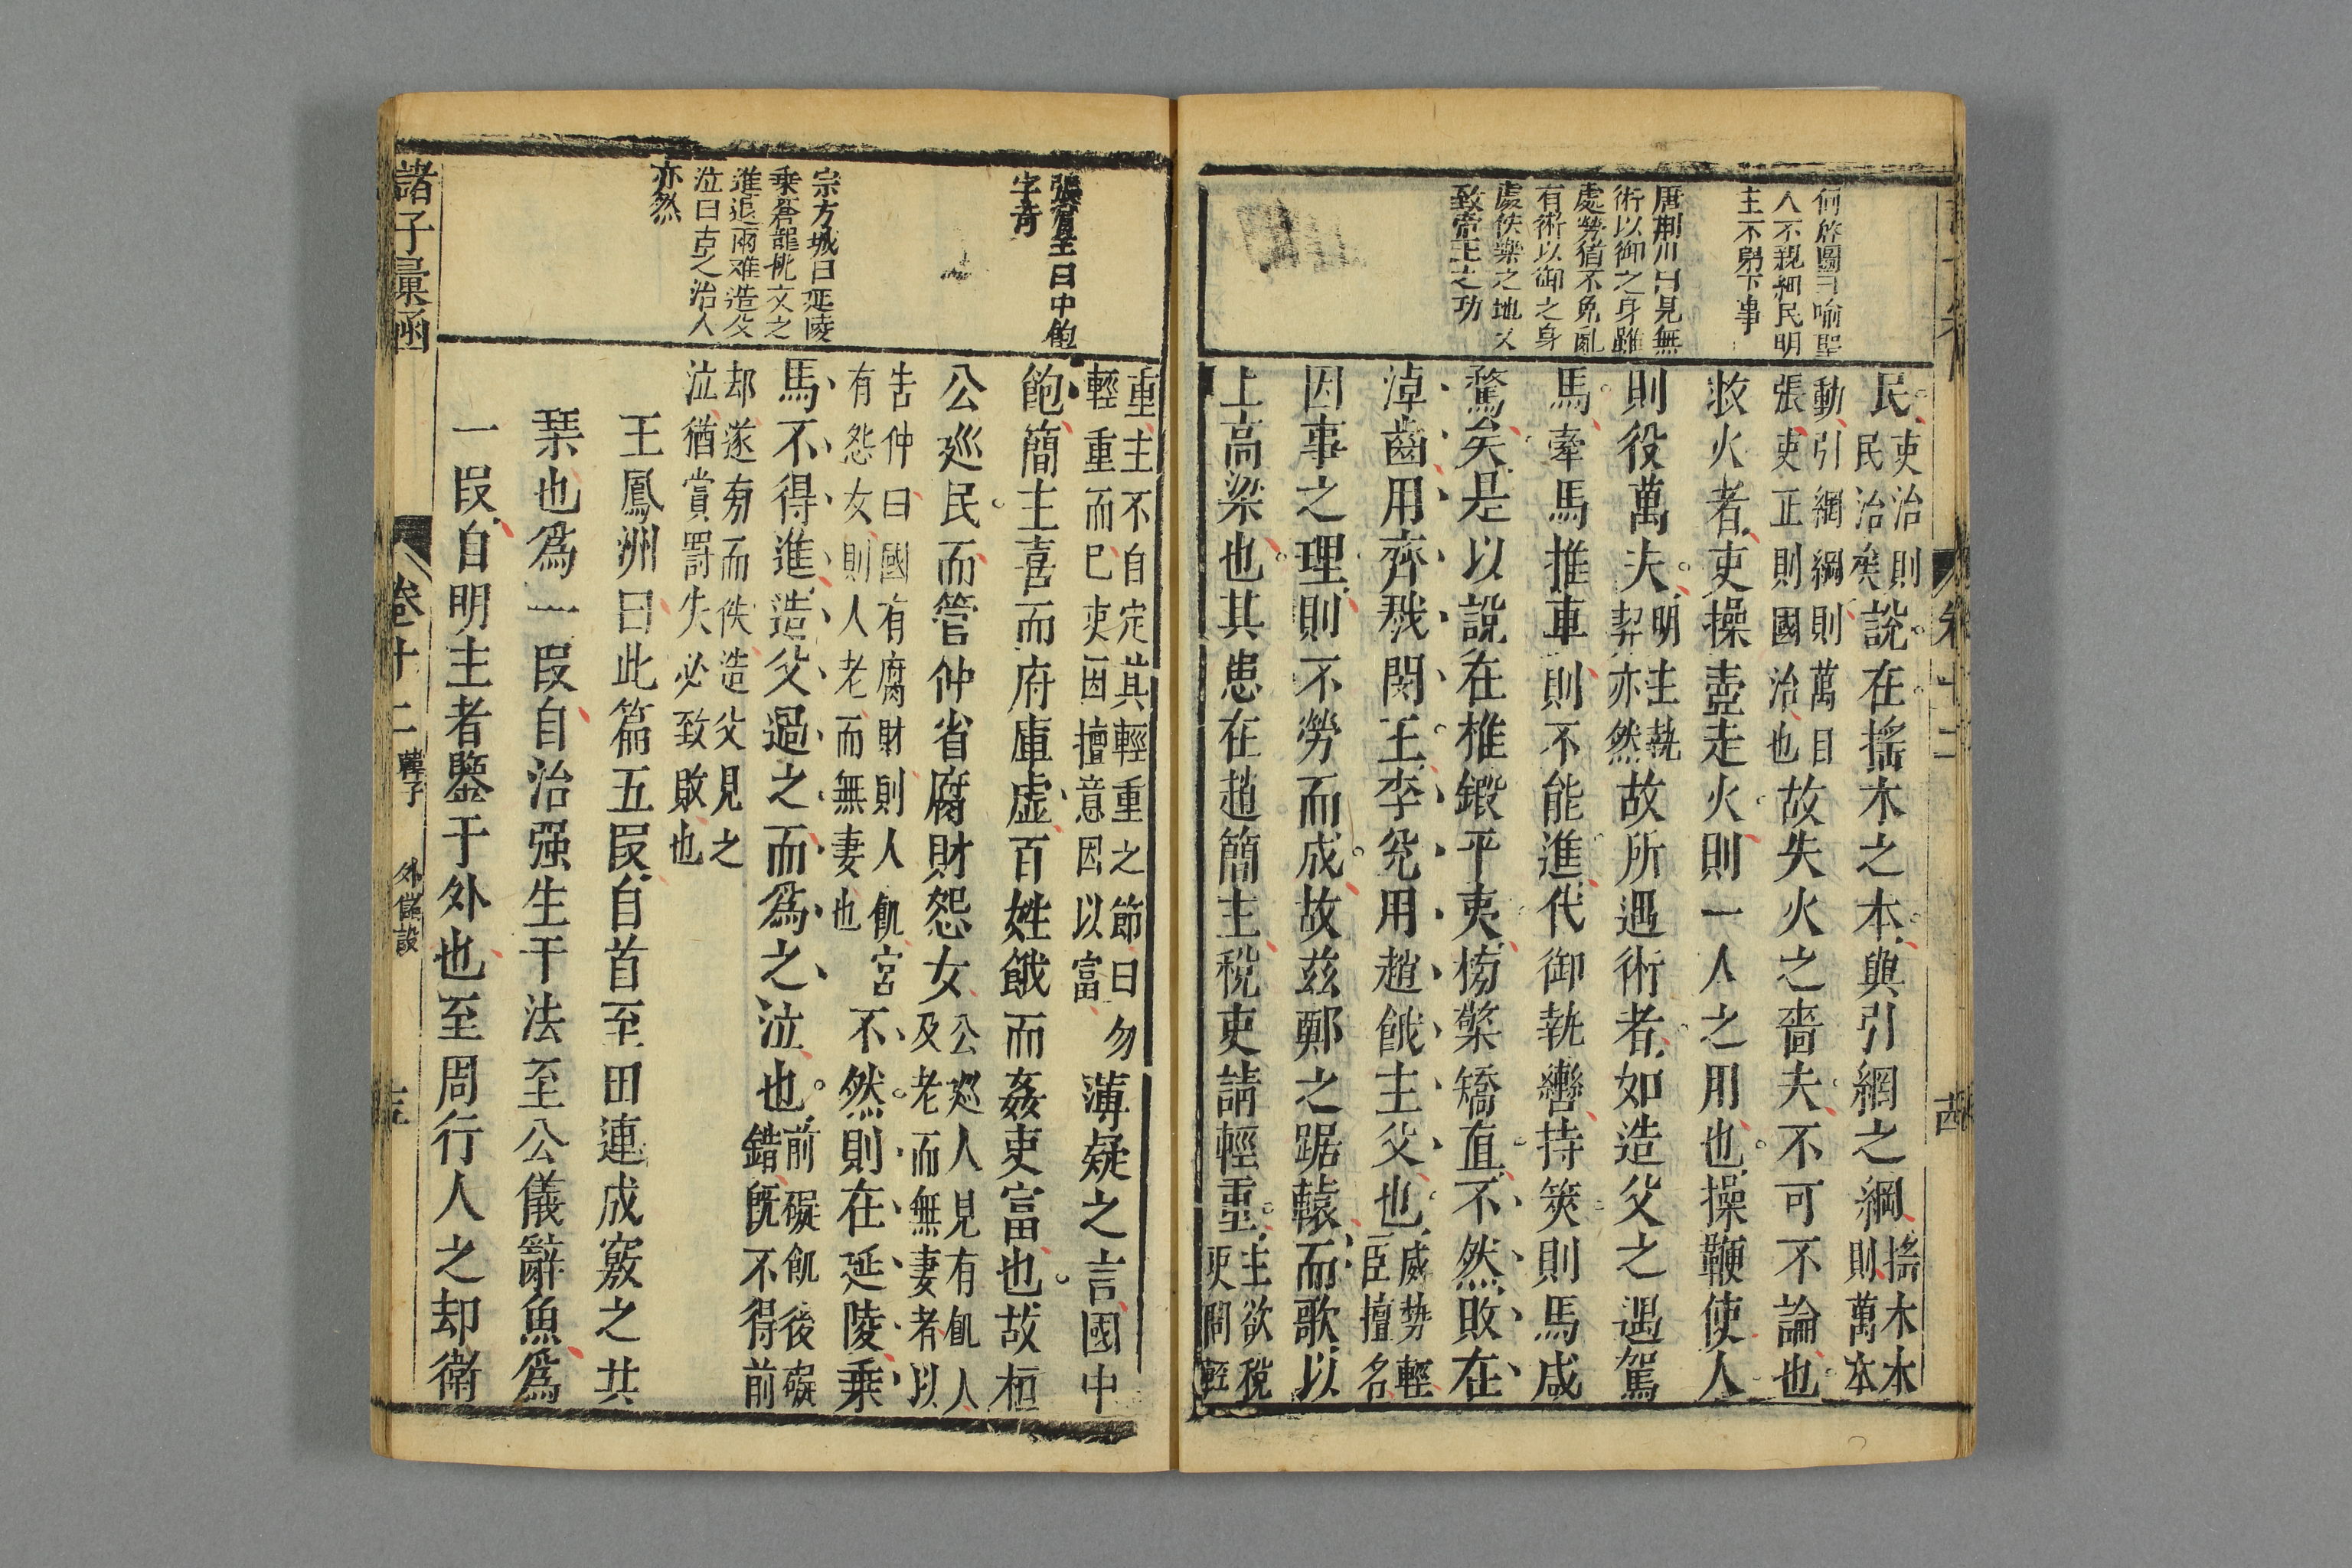 何啓圖曰喻聖
人不親細民明
主不躬下事
唐荆川曰見無
術以御之身雖
處勞猶不免亂
有術以御之身
處佚樂之地又
致帝王之功
民吏治則
民治矣說在搖木之本與引網之綱搖木本
則萬本
動引網綱則萬目
張吏正則國治也故失火之嗇夫不可不論也
救火者吏操壺走火則一人之用也操鞭使人
則役萬夫明主執
契亦然故所遇術者如造父之遇駕
馬牽馬推車則不能進代御執轡持筴則馬咸
驁矣是以說在椎鍛平夷榜檠矯直不然敗在
淖齒用齊戮閔王李兊用趙餓主父也威勢輕
臣擅名
因事之理則不勞而成故兹鄭之踞轅而歌以
上高梁也其患在趙簡主稅吏請輕重主欲稅
吏問輕
張賓王曰中飽
字奇
宗方城曰延陵
乘蒼龍桃文之
進退兩难造父
泣曰古之治人
亦然
重主不自定其輕重之節曰勿
輕重而已吏因擅意因以富薄疑之言國中
飽簡主喜而府庫虛百姓餓而姦吏富也故桓
公廵民而管仲省腐財怨女公廵人見有飢人
及老而無妻者以
告仲曰國有腐財則人飢宮
有怨女則人老而無妻也不然則在延陵乘
馬不得進造父過之而爲之泣也前礙飢後礙
錯旣不得前
却遂旁而佚造父見之
泣猶賞罰失必致敗也
王鳳洲曰此篇五叚自首至田連成竅之共
琹也爲一叚自治强生干法至公儀辭魚爲
一叚自明主者鑒于外也至周行人之却衛
諸子彙函
卷十二
韓子
外儲說